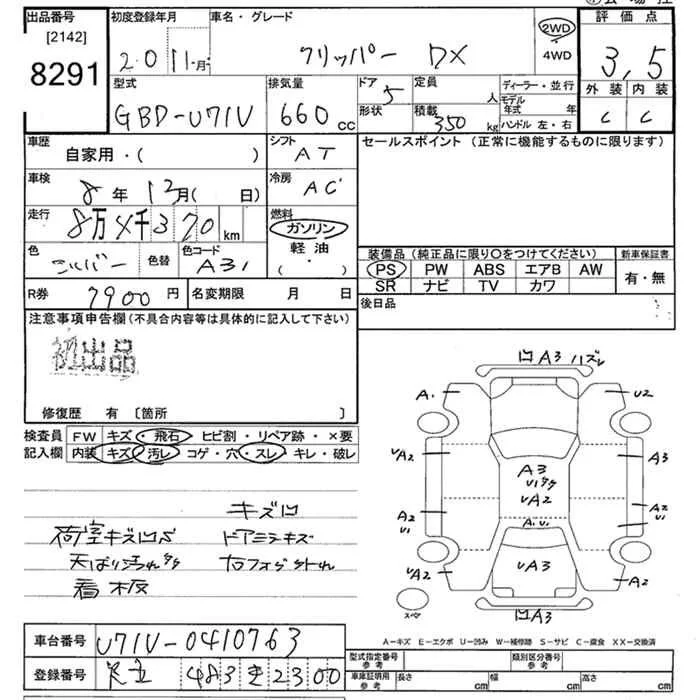 出品番号 初度登録年月 車名・グレード 評価点
[2142]
8291
20 11月 クリッパー DX 2WD
4WD
3.5
型式 排気量 ドア 定員 ディーラー・並行 外装 内装
GBD-U71V 660cc 5 人 モデル年式 年 C C
形状 積載 350kg ハンドル 左・右
車歴 シフト セールスポイント(正常に機能するものに限ります)
自家用・( ) AT
車検 冷房
8年12月( 日) AC
走行 燃料
8万4千370km ガソリン
軽油
( ・ )
色 色替 色コード
シルバー A31
装備品(純正品に限り○をつけてください) 新車保証書
PS PW ABS エアB AW 有・無
SR ナビ TV カワ
R券 7900円 名変期限 月 日 後日品
注意事項申告欄(不具合内容等は具体的に記入して下さい)
初出品
修復歴 有〔箇所 〕
検査員 FW キズ・飛石 ヒビ割・リペア跡・×要
記入欄 内装 キズ 汚レ コゲ・穴・スレ キレ・破レ
キズ凹
荷室キズ凹
ドアミラーキズ
天ばり汚れ
看板
凹A3 ハズレ
A1 U2
UA2 A3
A3
UA2
A2 A2
U1 U1
A1 U1
UA2 UA3 A2
スペア
凹A3
A-キズ E-エクボ U-凹み W-補修跡 S-サビ C-腐食 XX-交換済
車台番号 U71V-0410763
登録番号 足立 483 き 2300
型式指定番号 参考 類別区分番号 参考
車庫証明用 参考 長さ cm 幅 cm 高さ cm